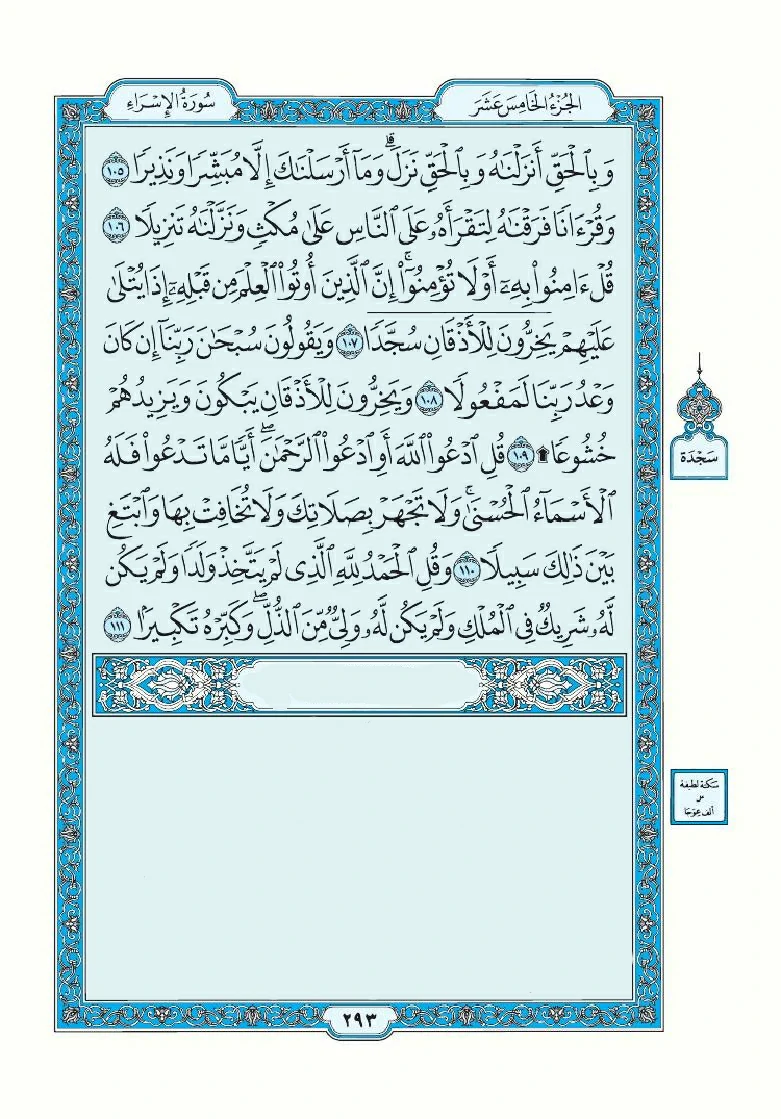 سُورَةُ الإِسْرَاءِ
الجُزْءُ الخَامِسَ عَشَرَ
وَبِٱلْحَقِّ أَنزَلْنَٰهُ وَبِٱلْحَقِّ نَزَلَ ۗ وَمَآ أَرْسَلْنَٰكَ إِلَّا مُبَشِّرًا وَنَذِيرًا ١٠٥
وَقُرْءَانًا فَرَقْنَٰهُ لِتَقْرَأَهُۥ عَلَى ٱلنَّاسِ عَلَىٰ مُكْثٍ وَنَزَّلْنَٰهُ تَنزِيلًا ١٠٦
قُلْ ءَامِنُوا۟ بِهِۦٓ أَوْ لَا تُؤْمِنُوٓا۟ ۚ إِنَّ ٱلَّذِينَ أُوتُوا۟ ٱلْعِلْمَ مِن قَبْلِهِۦٓ إِذَا يُتْلَىٰ
عَلَيْهِمْ يَخِرُّونَ لِلْأَذْقَانِ سُجَّدًا ١٠٧ وَيَقُولُونَ سُبْحَٰنَ رَبِّنَآ إِن كَانَ
وَعْدُ رَبِّنَا لَمَفْعُولًا ١٠٨ وَيَخِرُّونَ لِلْأَذْقَانِ يَبْكُونَ وَيَزِيدُهُمْ
خُشُوعًا ۩ ١٠٩ قُلِ ٱدْعُوا۟ ٱللَّهَ أَوِ ٱدْعُوا۟ ٱلرَّحْمَٰنَ ۖ أَيًّا مَّا تَدْعُوا۟ فَلَهُ
ٱلْأَسْمَآءُ ٱلْحُسْنَىٰ ۚ وَلَا تَجْهَرْ بِصَلَاتِكَ وَلَا تُخَافِتْ بِهَا وَٱبْتَغِ
بَيْنَ ذَٰلِكَ سَبِيلًا ١١٠ وَقُلِ ٱلْحَمْدُ لِلَّهِ ٱلَّذِى لَمْ يَتَّخِذْ وَلَدًا وَلَمْ يَكُن
لَّهُۥ شَرِيكٌ فِى ٱلْمُلْكِ وَلَمْ يَكُن لَّهُۥ وَلِىٌّ مِّنَ ٱلذُّلِّ ۖ وَكَبِّرْهُ تَكْبِيرًۢا ١١١
سَجْدَة
سكتة لطيفة
على
ألف عوجا
٢٩٣